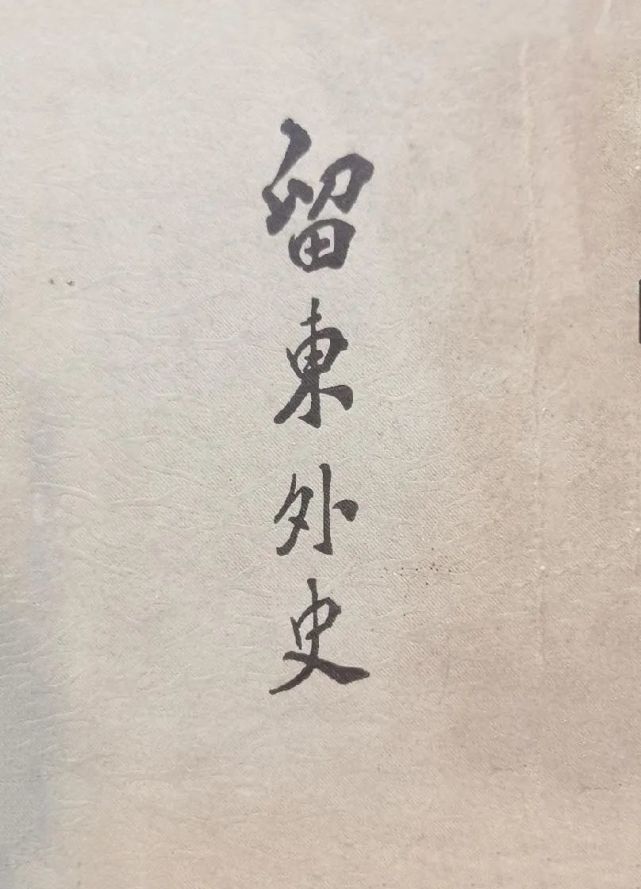 留東外史